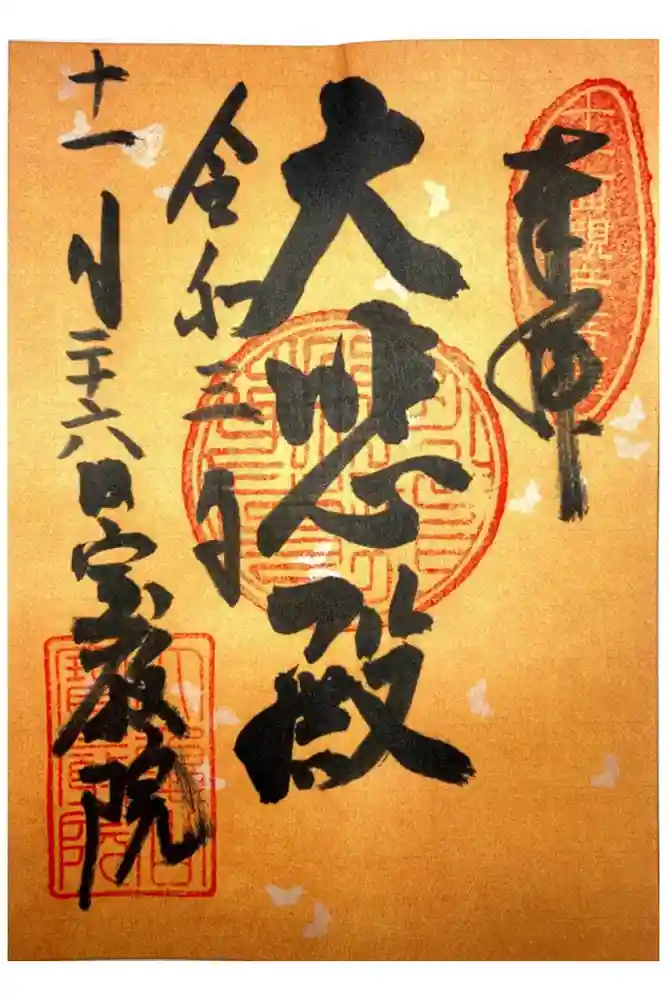 奉拝
大悲殿
令和三年
十一月二十六日宝厳院